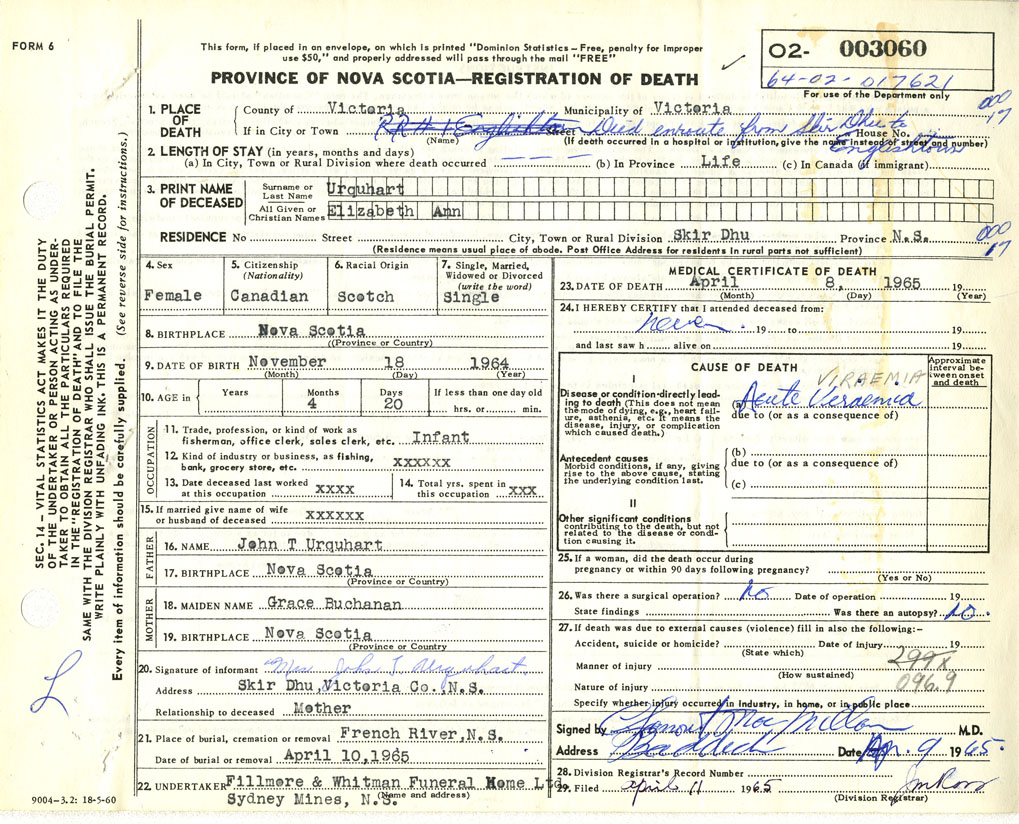 FORM 6
This form, if placed in an envelope, on which is printed "Dominion Statistics – Free, penalty for improper
use $50," and properly addressed will pass through the mail "FREE"
PROVINCE OF NOVA SCOTIA—REGISTRATION OF DEATH
02- 003060
64-02-017621
For use of the Department only
1. PLACE OF DEATH
County of Victoria Municipality of Victoria
If in City or Town R R # 1 Englishtown Street Died enroute from Skir Dhu to Englishtown House No.
(Name) (If death occurred in a hospital or institution, give the name instead of street and number)
000
17
2. LENGTH OF STAY (in years, months and days)
(a) In City, Town or Rural Division where death occurred — — — (b) In Province Life (c) In Canada (if immigrant)
3. PRINT NAME OF DECEASED
Surname or Last Name Urquhart
All Given or Christian Names Elizabeth Ann
RESIDENCE No Street City, Town or Rural Division Skir Dhu Province N.S.
(Residence means usual place of abode. Post Office Address for residents in rural parts not sufficient)
000
17
4. Sex
Female
5. Citizenship (Nationality)
Canadian
6. Racial Origin
Scotch
7. Single, Married, Widowed or Divorced (write the word)
Single
8. BIRTHPLACE Nova Scotia
(Province or Country)
9. DATE OF BIRTH November 18 1964
(Month) (Day) (Year)
10. AGE in Years Months 4 Days 20 If less than one day old hrs. or min.
OCCUPATION
11. Trade, profession, or kind of work as
fisherman, office clerk, sales clerk, etc. Infant
12. Kind of industry or business, as fishing,
bank, grocery store, etc. xxxxxx
13. Date deceased last worked
at this occupation xxxx
14. Total yrs. spent in
this occupation xxx
15. If married give name of wife
or husband of deceased xxxxxx
FATHER
16. NAME John T Urquhart
17. BIRTHPLACE Nova Scotia
(Province or Country)
MOTHER
18. MAIDEN NAME Grace Buchanan
19. BIRTHPLACE Nova Scotia
(Province or Country)
20. Signature of informant Mrs John T Urquhart
Address Skir Dhu, Victoria Co., N.S.
Relationship to deceased Mother
21. Place of burial, cremation or removal French River, N.S.
Date of burial or removal April 10, 1965
22. UNDERTAKER Fillmore & Whitman Funeral Home Ltd.
Sydney Mines, N.S.
(Name and address)
MEDICAL CERTIFICATE OF DEATH
23. DATE OF DEATH April 8, 1965 19
(Month) (Day) (Year)
24. I HEREBY CERTIFY that I attended deceased from:
never 19 to 19
and last saw h alive on 19
CAUSE OF DEATH
Approximate interval between onset and death
I
Disease or condition directly leading to death (This does not mean the mode of dying, e.g., heart failure, asthenia, etc. It means the disease, injury, or complication which caused death.)
VIRAEMIA
(a) Acute Veraemia
due to (or as a consequence of)
Antecedent causes
Morbid conditions, if any, giving rise to the above cause, stating the underlying condition last.
(b)
due to (or as a consequence of)
(c)
II
Other significant conditions
contributing to the death, but not related to the disease or condition causing it.
25. If a woman, did the death occur during
pregnancy or within 90 days following pregnancy?
(Yes or No)
26. Was there a surgical operation? No Date of operation 19
State findings Was there an autopsy? No.
27. If death was due to external causes (violence) fill in also the following:–
Accident, suicide or homicide? Date of injury 19
(State which)
299X
Manner of injury
(How sustained)
096.9
Nature of injury
Specify whether injury occurred in industry, in home, or in public place
Signed by MacMillan M.D.
Address Baddeck Date Ap. 9 1965.
28. Division Registrar's Record Number
29. Filed april 11 1965 J M Ross
(Division Registrar)
9004-3.2: 18-5-60
SEC. 14 – VITAL STATISTICS ACT MAKES IT THE DUTY
OF THE UNDERTAKER OR PERSON ACTING AS UNDER-
TAKER TO OBTAIN ALL THE PARTICULARS REQUIRED
IN THE "REGISTRATION OF DEATH" AND TO FILE THE
SAME WITH THE DIVISION REGISTRAR WHO SHALL ISSUE THE BURIAL PERMIT.
WRITE PLAINLY WITH UNFADING INK. THIS IS A PERMANENT RECORD.
Every item of information should be carefully supplied. (See reverse side for instructions.)
L